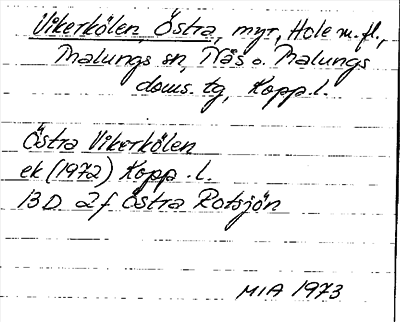 Vikerkölen, Östra, myr, Hole m. fl.,
Malungs sn, Näs o. Malungs
doms. tg, Kopp. l.
Östra Vikerkölen
ek (1972) Kopp. l.
13 D 2f Östra Rotsjön
MIA 1973